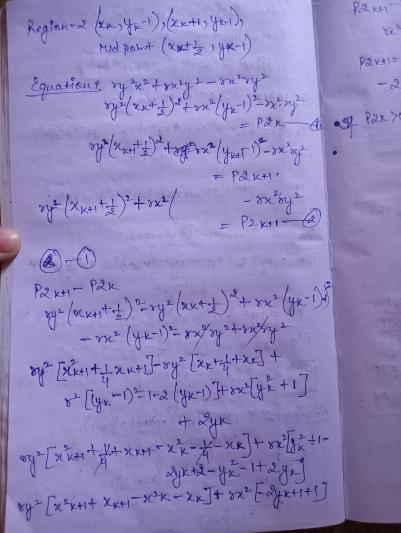 Region-2 (xk, yk-1), (xk+1, yk-1),
Mid point (xk+1/2, yk-1)
Equation:- ry²x² + rx²y² - rx²ry²
ry²(xk+1/2)² + rx²(yk-1)² - rx²ry²
= P2k - ①
ry²(xk+1+1/2)² + rx²(yk+1-1)² - rx²ry²
= P2k+1.
ry²(xk+1+1/2)² + rx²(
- rx²ry²
= P2k+1 - ②
② - ①
P2k+1 - P2k
ry²(xk+1+1/2)² - ry²(xk+1/2)² + rx²(yk-1)-1)²
- rx²(yk-1)² - rx²ry² + rx²ry²
ry²[x²k+1+1/4+xk+1] - ry²[xk+1/4+xk] +
r²[(yk-1)²+1-2(yk-1)] + rx²[yk²+1]
+ 2yk
ry²[x²k+1+1/4+xk+1-x²k-1/4-xk] + rx²[yk²+1-
2yk+2-yk²-1+2yk]
ry²[x²k+1+xk+1-x²k-xk] + rx²[-2yk+1+1]
P2k+1 -
rx²
P2k+1 =
- 2
If P2k >